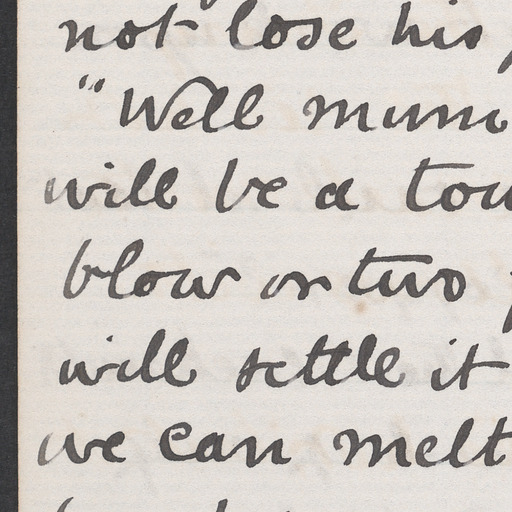 not lose his
"Well mum
will be a tou
blow or two
will settle it
we can melt